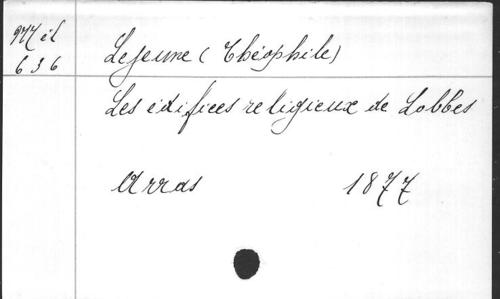 977 il
636
Lejeune (Théophile)
Les édifices religieux de Lobbes
Arras 1877